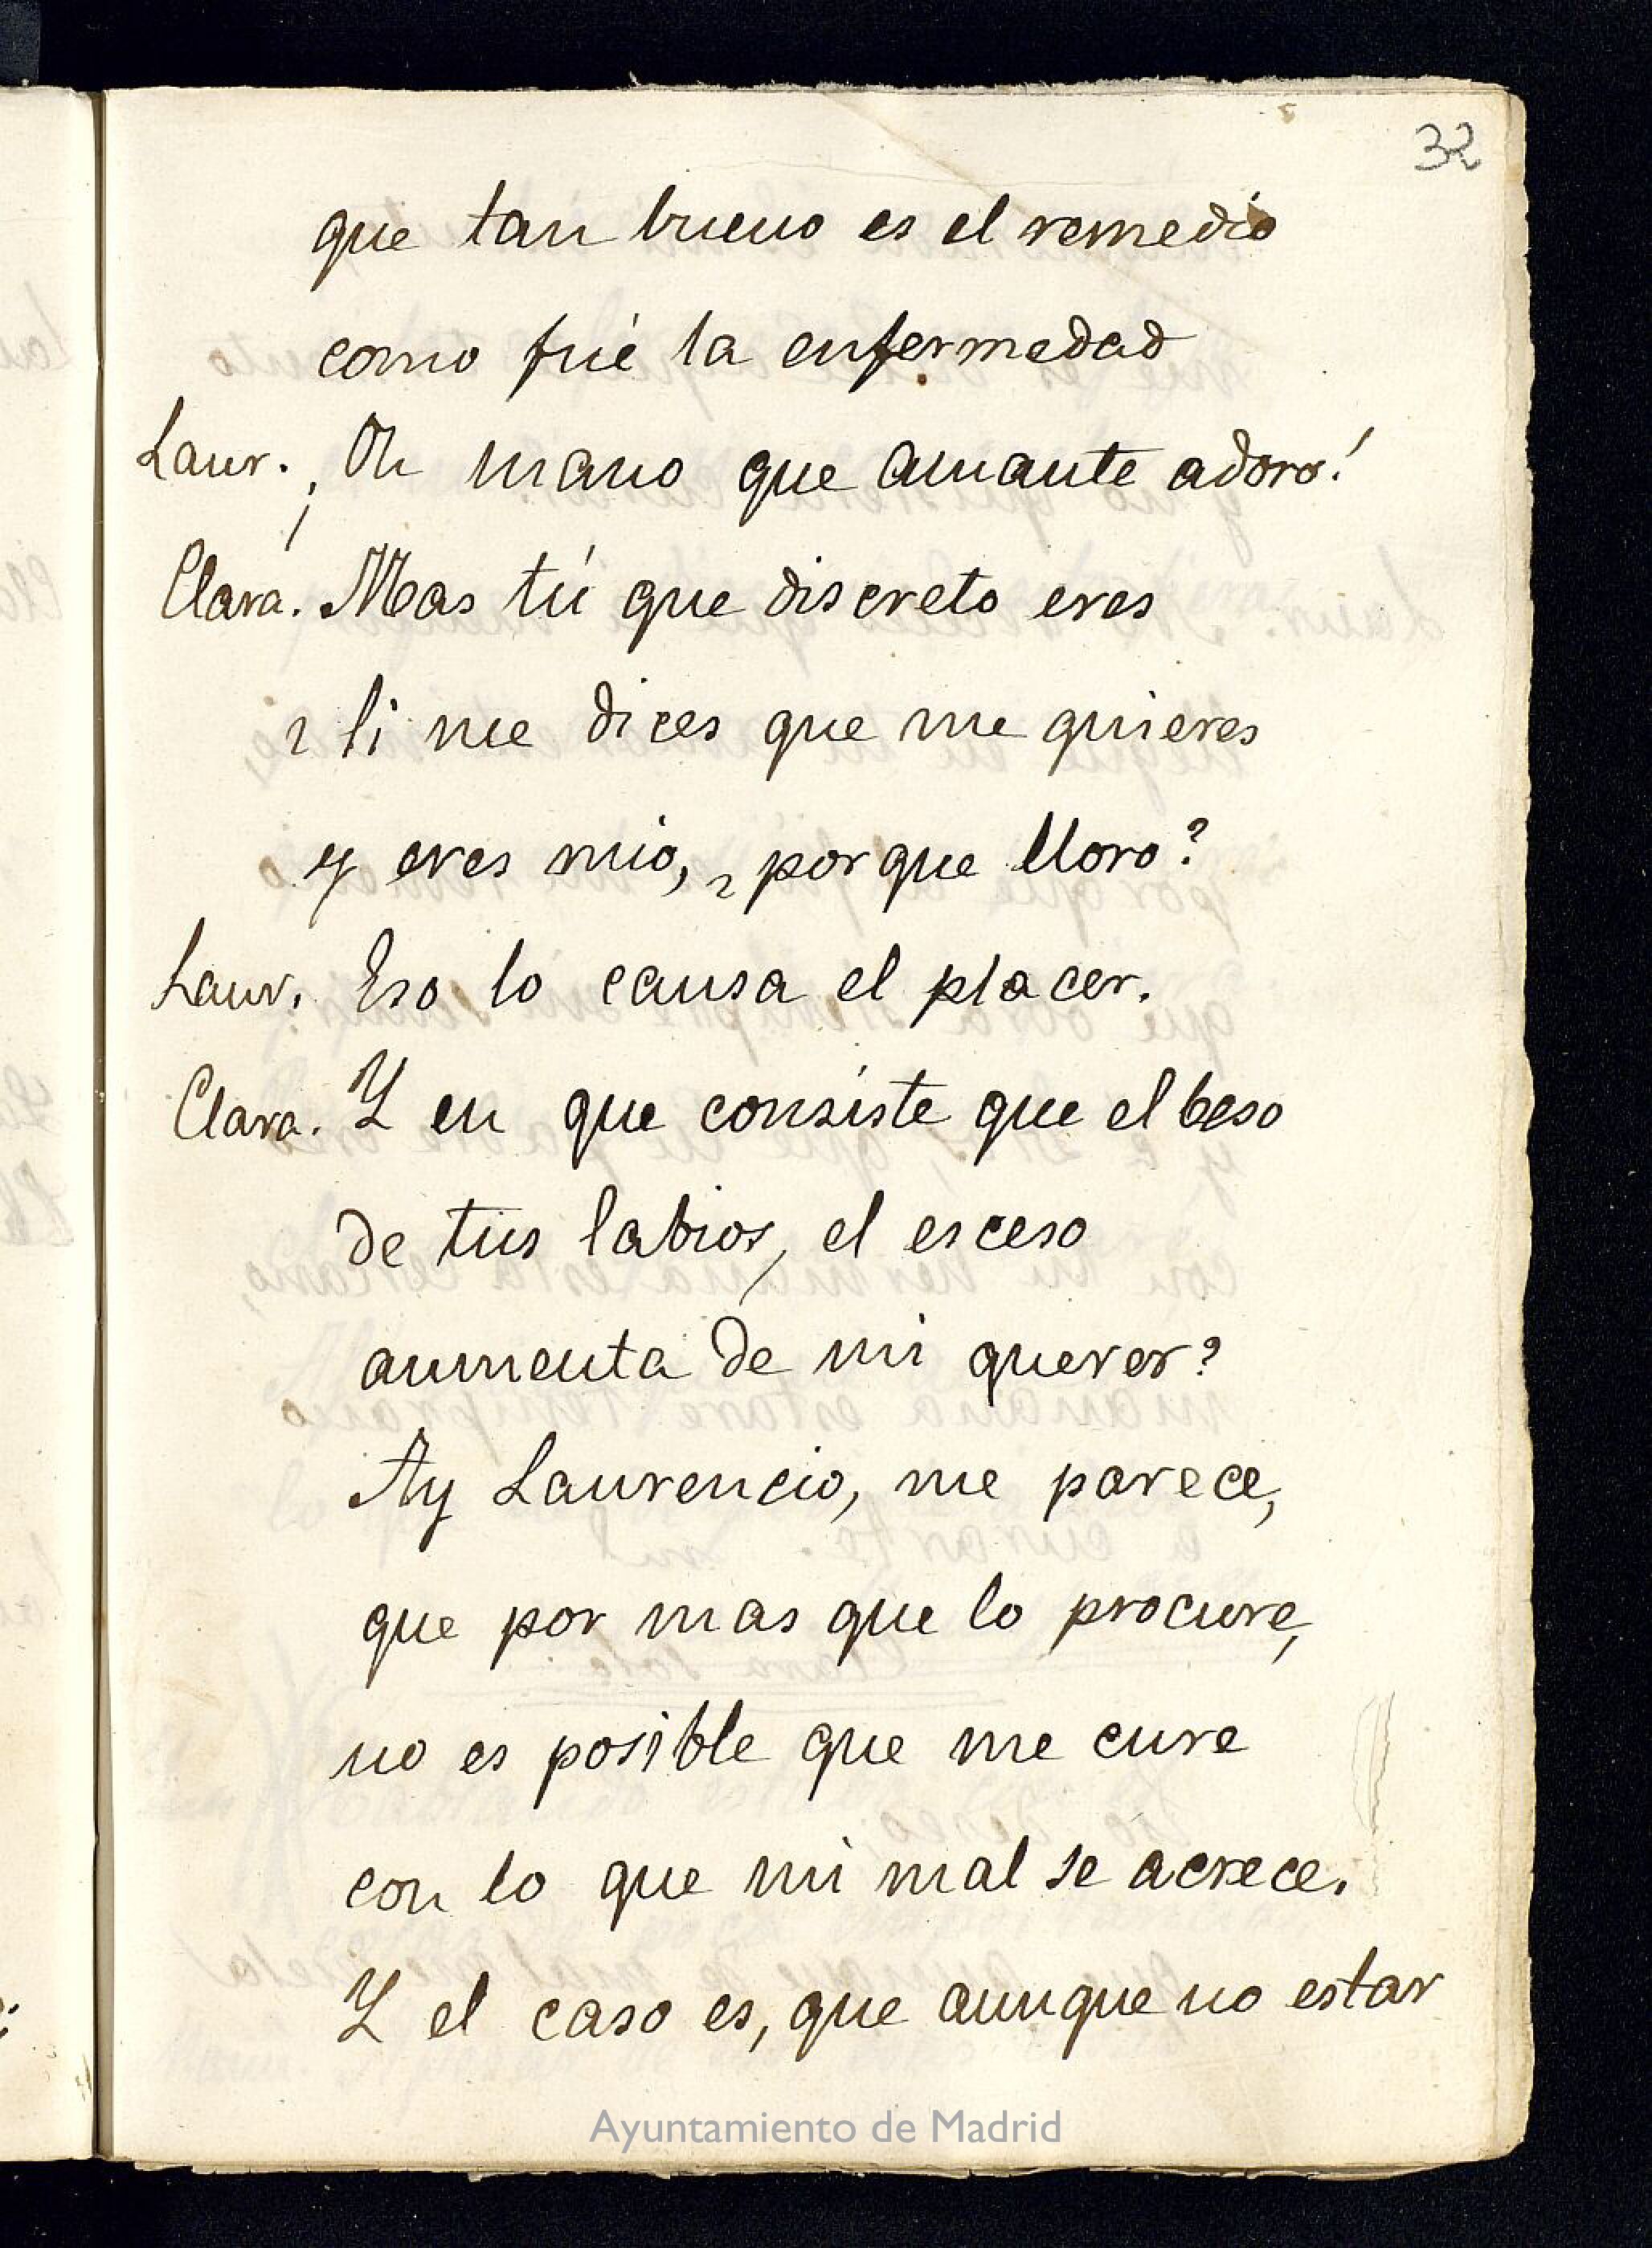 32
que tan bueno es el remedio
como fué la enfermedad
Laur. ¡Oh mano que amante adoro!
Clara. Mas tú que discreto eres
¿Si me dices que me quieres
y eres mio, ¿porque lloro?
Laur. Eso lo causa el placer.
Clara. Y en que consiste que el beso
de tus labios, el esceso
aumenta de mi querer?
Ay Laurencio, me parece,
que por mas que lo procure,
no es posible que me cure
con lo que mi mal se acrece.
Y el caso es, que aunque no estar
Ayuntamiento de Madrid